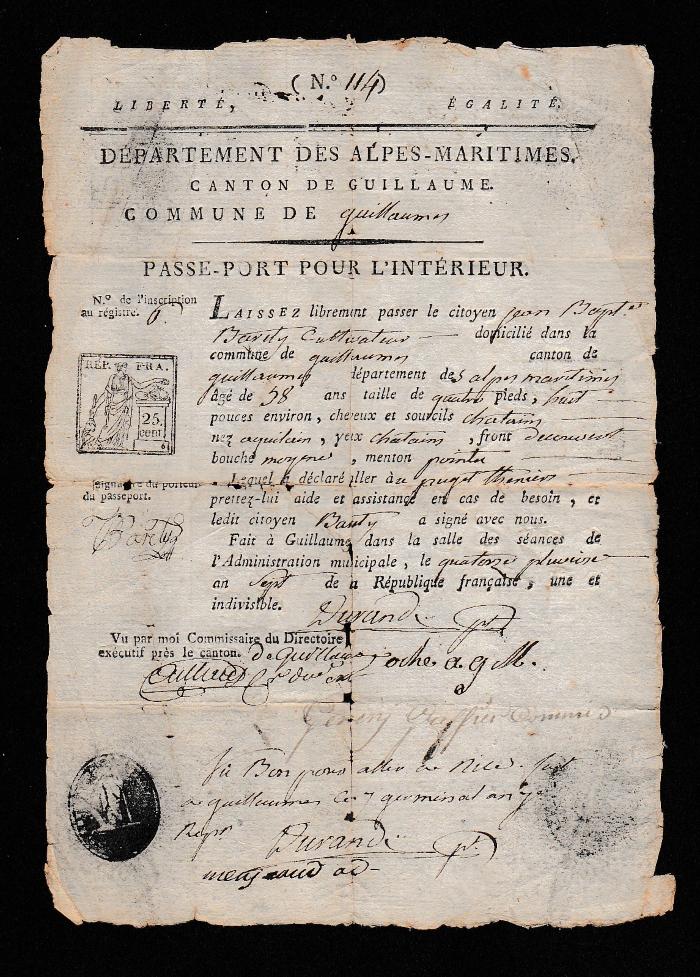 ( N.º 114)
LIBERTÉ, ÉGALITÉ.
DÉPARTEMENT DES ALPES-MARITIMES.
CANTON DE GUILLAUME.
COMMUNE DE guillaumes
PASSE-PORT POUR L'INTÉRIEUR.
N.º de l'inscription
au régistre. 6
RÉP. FRA.
25.
cent.
LAISSEZ librement passer le citoyen jean Bapt.te
Barety Cultivateur domicilié dans la
commune de guillaumes canton de
guillaumes département des alpes maritimes
âgé de 58 ans taille de quatre pieds, huit
pouces environ, cheveux et sourcils chatains
nez aquilain, yeux chatains, front decouvert
bouche moyene, menton pointu
Lequel a déclaré aller à au puget theniers
prettez-lui aide et assistance en cas de besoin, et
ledit citoyen Barety a signé avec nous.
Signature du porteur
du passeport.
Barety
Fait à Guillaume dans la salle des séances de
l'Administration municipale, le quatorse pluviose
an sept de la République française, une et
indivisible.
Durandi pt.
Vu par moi Commissaire du Directoire
exécutif près le canton. de Guillaumes
oche a g M.
Vû Bon pour aller a Nice. fait
a guillaumes Ce 7 germinal an 7
Rep.
Durandi pt.